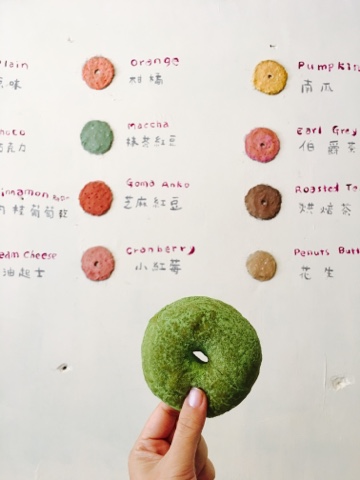 Plain
原味
Orange
柑橘
Pumpkin
南瓜
Maccha
抹茶紅豆
Earl Grey
伯爵茶
Cinnamon
肉桂葡萄乾
Goma Anko
芝麻紅豆
Roasted Tea
烘焙茶
Cream Cheese
奶油起士
Cranberry
小紅莓
Peanuts Butt
花生